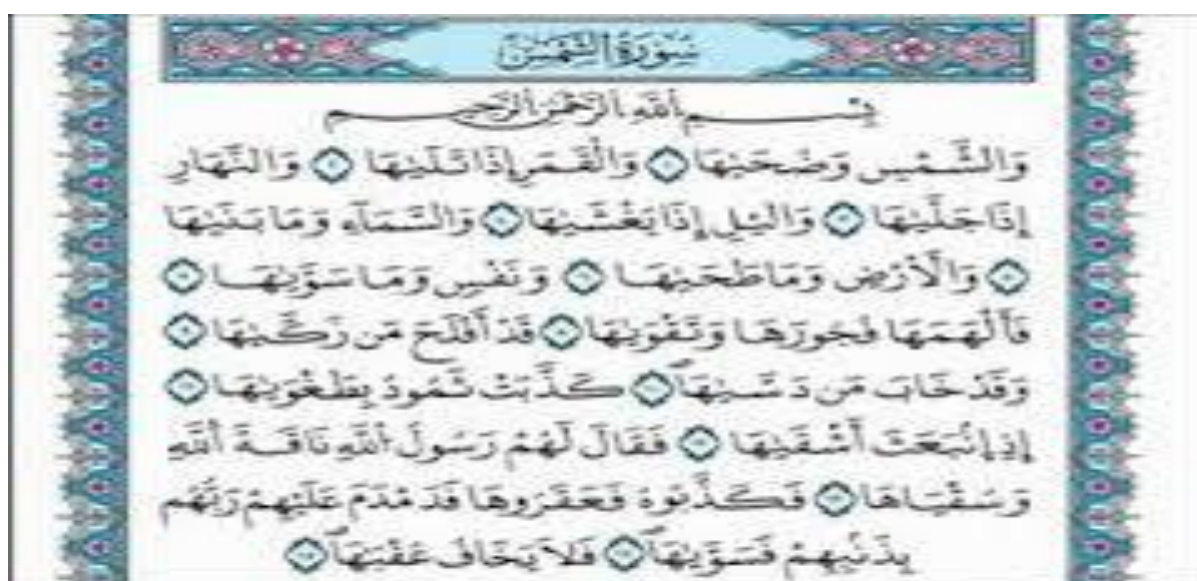 سُورَةُ الشَّمْسِ
بِسْمِ اللَّهِ الرَّحْمَٰنِ الرَّحِيمِ
وَالشَّمْسِ وَضُحَىٰهَا ۝ وَالْقَمَرِ إِذَا تَلَىٰهَا ۝ وَالنَّهَارِ
إِذَا جَلَّىٰهَا ۝ وَالَّيْلِ إِذَا يَغْشَىٰهَا ۝ وَالسَّمَآءِ وَمَا بَنَىٰهَا
۝ وَالْأَرْضِ وَمَا طَحَىٰهَا ۝ وَنَفْسٍ وَمَا سَوَّىٰهَا ۝
فَأَلْهَمَهَا فُجُورَهَا وَتَقْوَىٰهَا ۝ قَدْ أَفْلَحَ مَن زَكَّىٰهَا ۝
وَقَدْ خَابَ مَن دَسَّىٰهَا ۝ كَذَّبَتْ ثَمُودُ بِطَغْوَىٰهَا ۝
إِذِ اِنۢبَعَثَ أَشْقَىٰهَا ۝ فَقَالَ لَهُمْ رَسُولُ اللَّهِ نَاقَةَ اللَّهِ
وَسُقْيَاهَا ۝ فَكَذَّبُوهُ فَعَقَرُوهَا فَدَمْدَمَ عَلَيْهِمْ رَبُّهُم
بِذَنۢبِهِمْ فَسَوَّىٰهَا ۝ فَلَا يَخَافُ عُقْبَىٰهَا ۝